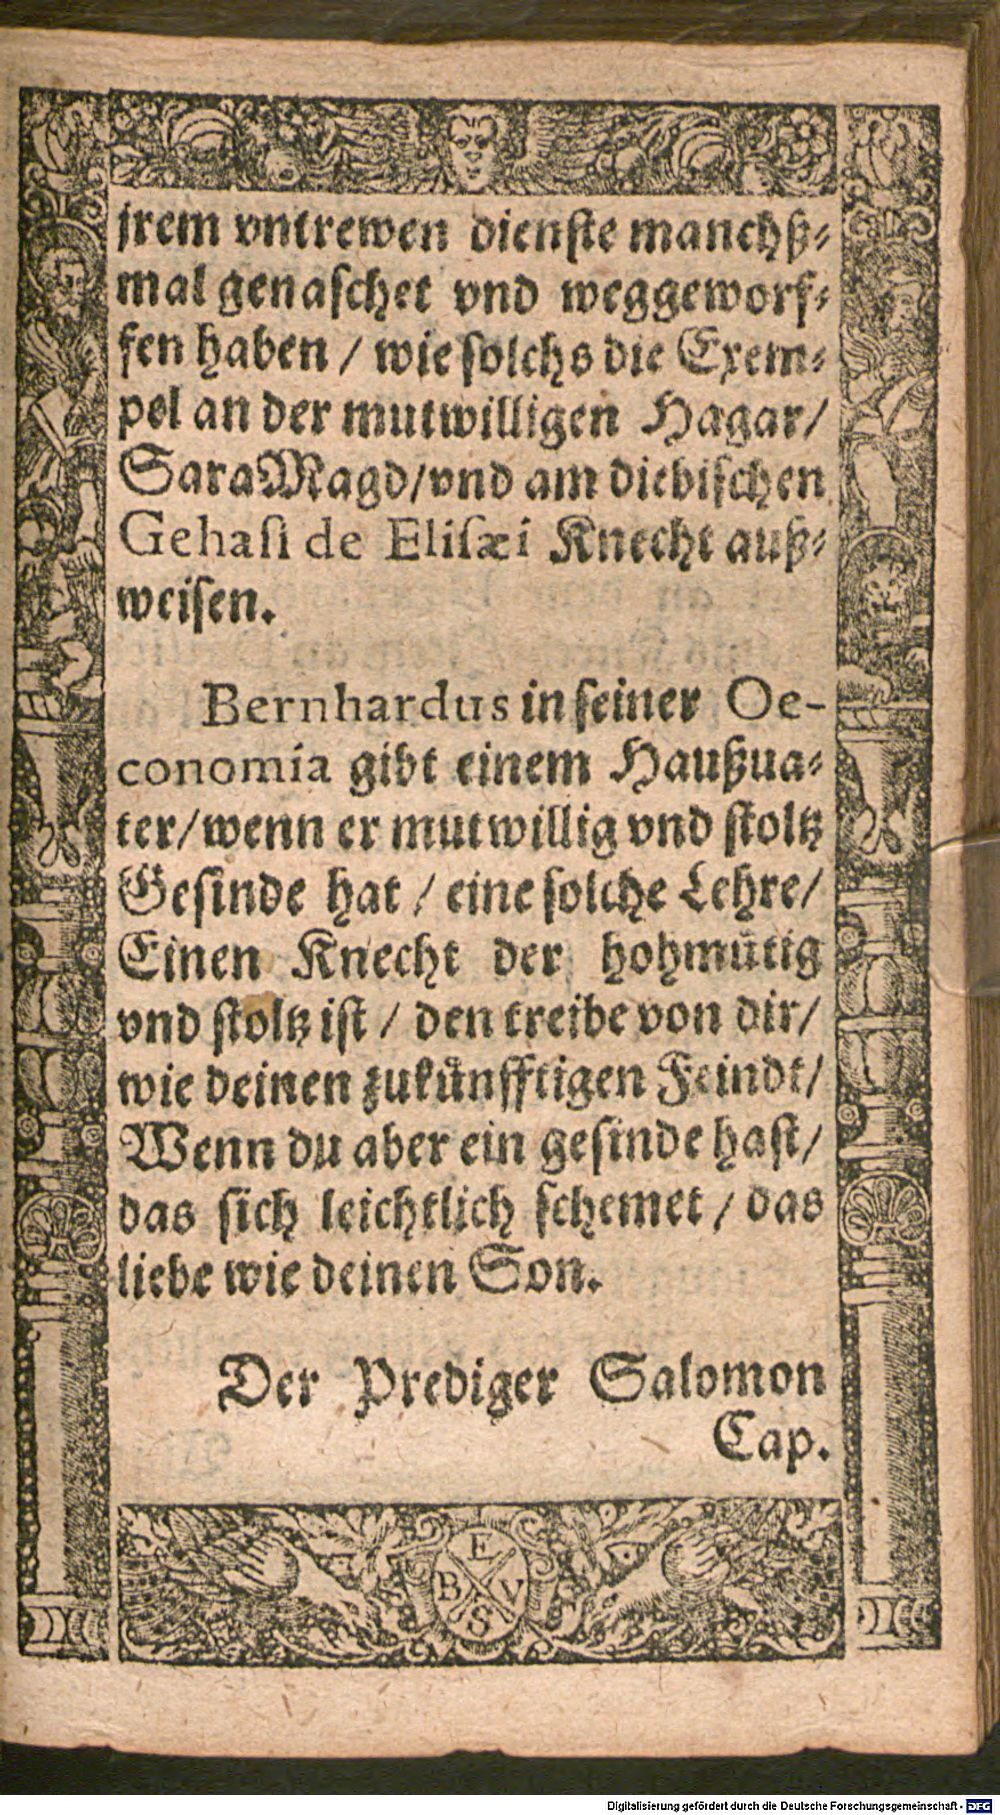 jrem vntrewen dienſte manchß⸗
mal genaſchet vnd weggeworf⸗
fen haben / wie ſolchs die Exem⸗
pel an der mutwilligen Hagar/
Sara Magd/vnd am diebiſchen
Gehaſi de Eliſæi Knecht auß⸗
weiſen.
Bernhardus in ſeiner Oe-
conomia gibt einem Haußua⸗
ter/wenn er mutwillig vnd ſtoltz
Geſinde hat / eine ſolche Lehre/
Einen Knecht der hohmütig
vnd ſtoltz iſt / den treibe von dir/
wie deinen zukünfftigen Feindt/
Wenn du aber ein geſinde haſt/
das ſich leichtlich ſchemet / das
liebe wie deinen Son.
Der Prediger Salomon
Cap.
E
B V
S
Digitalisierung gefördert durch die Deutsche Forschungsgemeinschaft - DFG